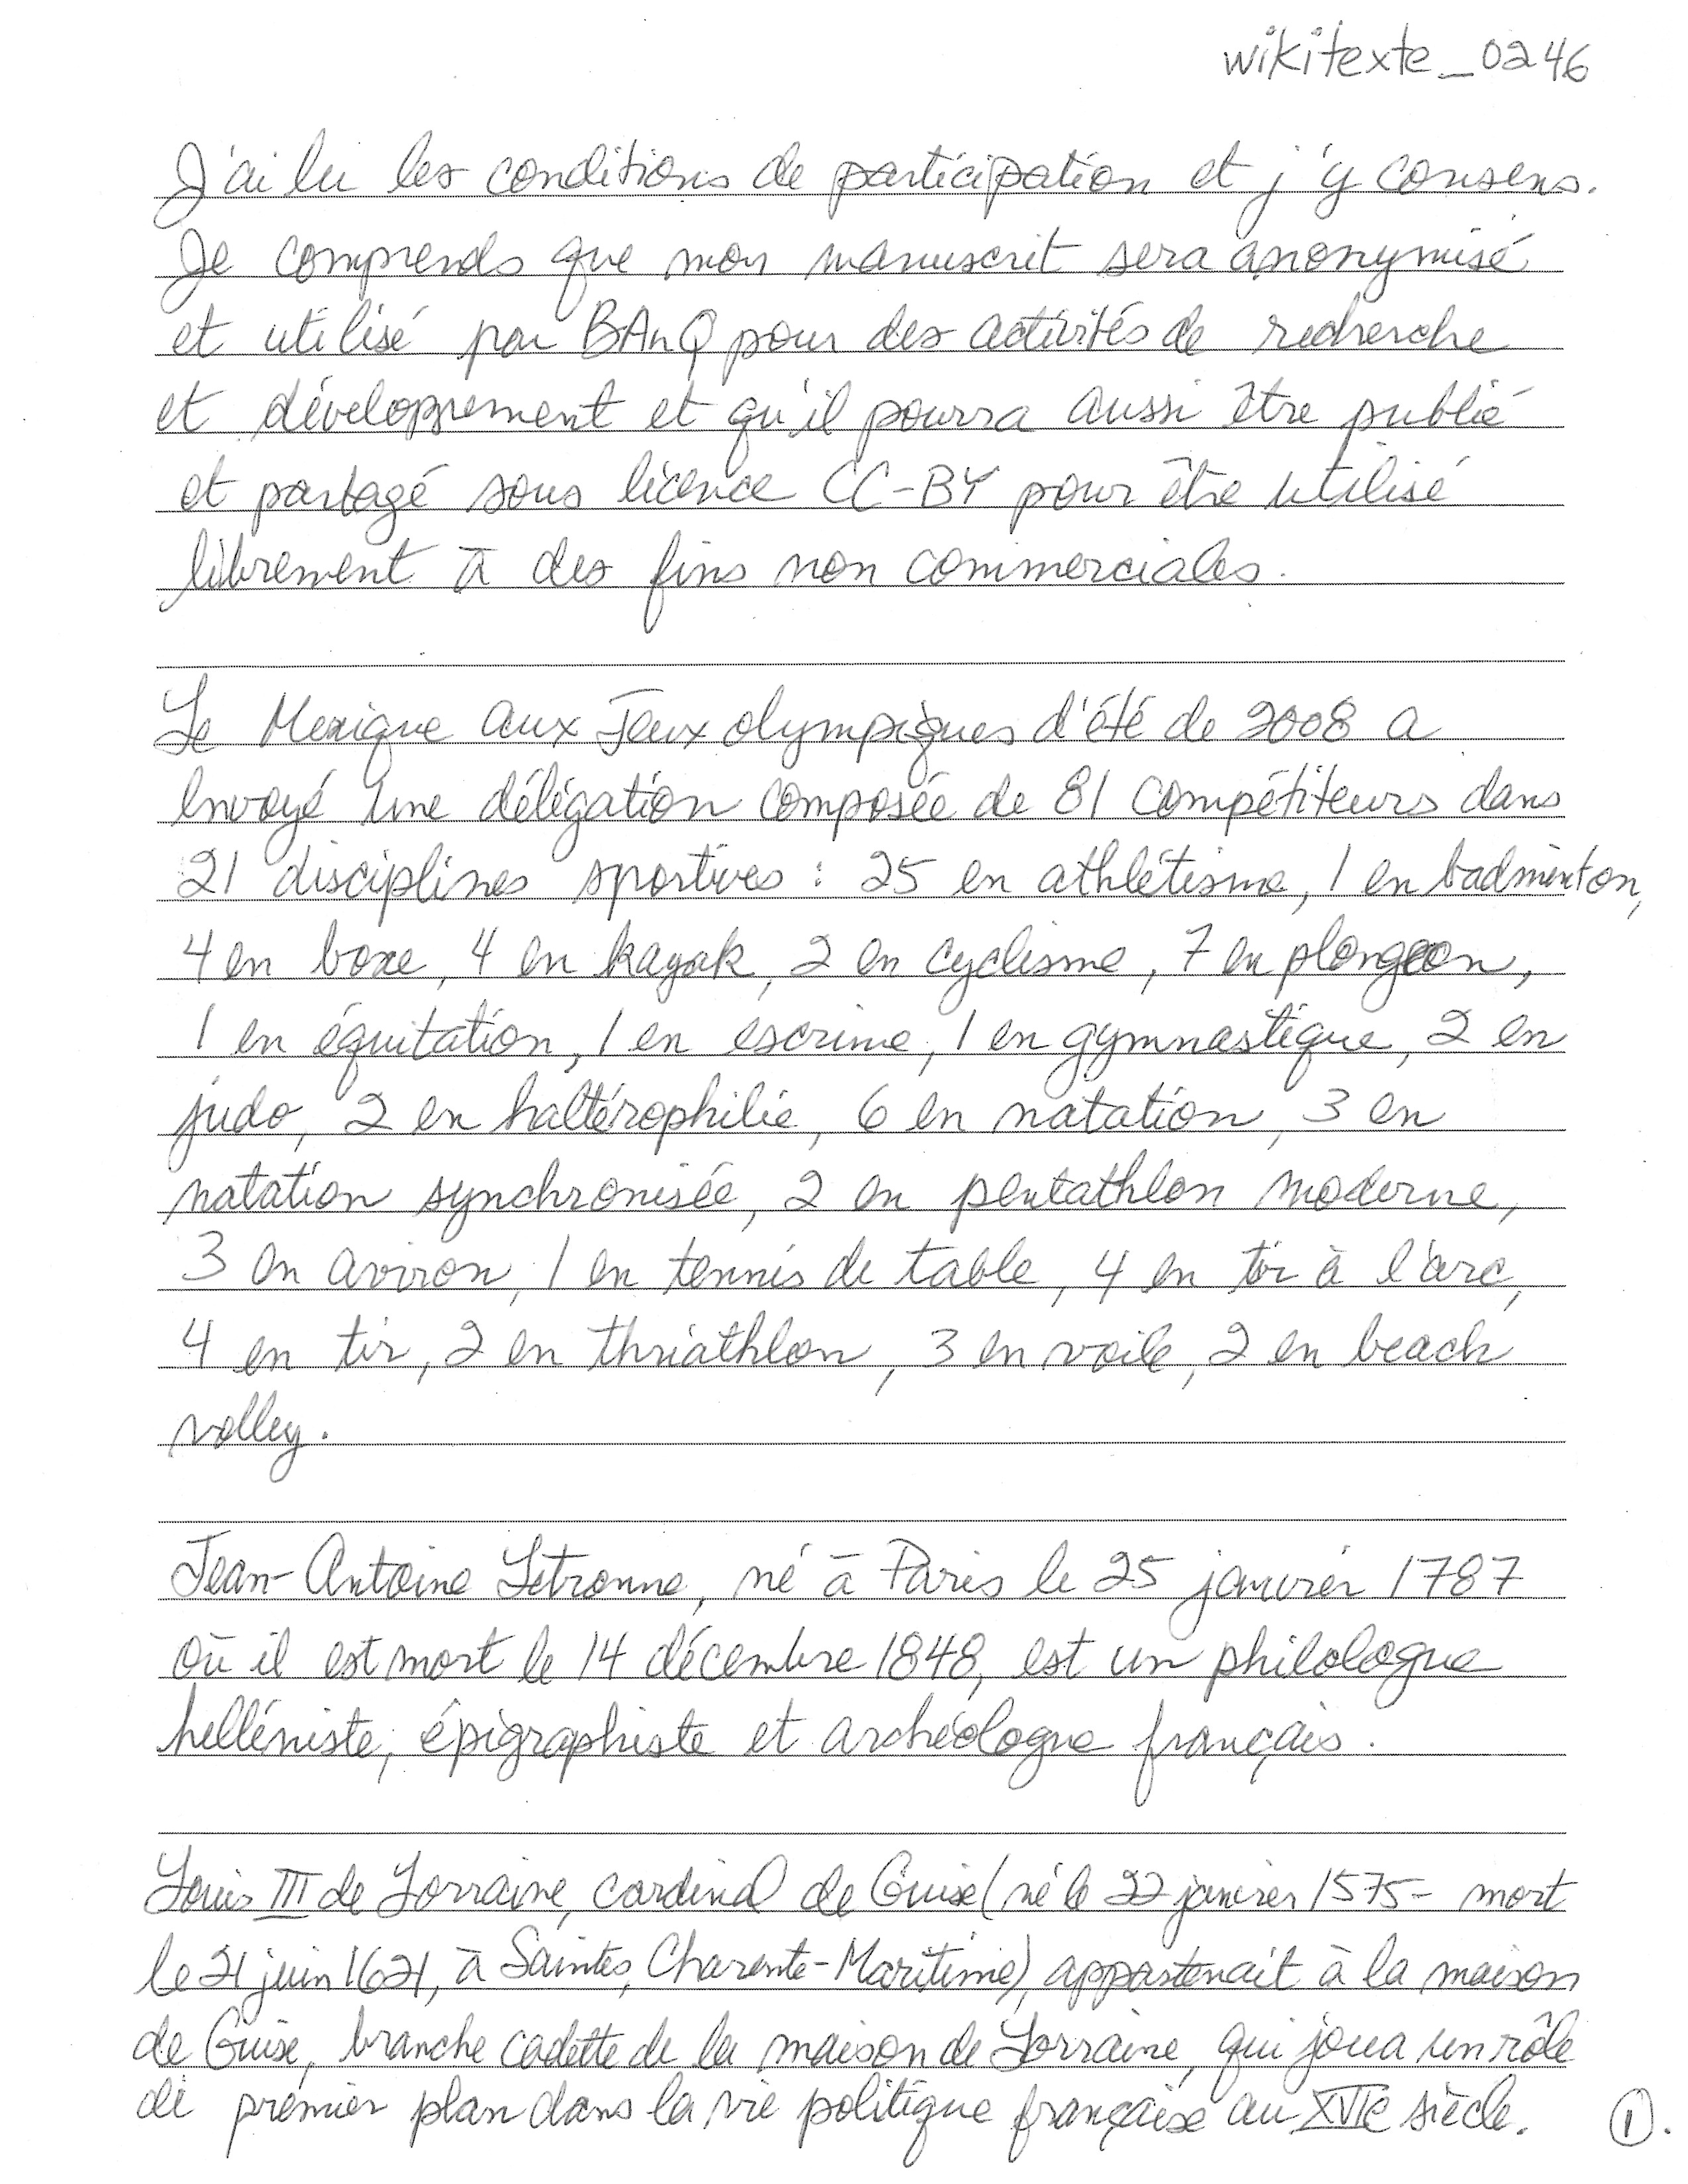 wikitexte_0246
J'ai lu les conditions de participation et j'y consens.
Je comprends que mon manuscrit sera anonymisé
et utilisé par BAnQ pour des activités de recherche
et développement et qu'il pourra aussi être publié
et partagé sous licence CC-BY pour être utilisé
librement à des fins non commerciales.
Le Mexique aux Jeux olympiques d'été de 2008 a
envoyé une délégation composée de 81 compétiteurs dans
21 disciplines sportives : 25 en athlétisme, 1 en badminton,
4 en boxe, 4 en kayak, 2 en cyclisme, 7 en plongeon,
1 en équitation, 1 en escrime, 1 en gymnastique, 2 en
judo, 2 en haltérophilie, 6 en natation, 3 en
natation synchronisée, 2 en pentathlon moderne,
3 en aviron, 1 en tennis de table, 4 en tir à l'arc,
4 en tir, 2 en thriathlon, 3 en voile, 2 en beach
volley.
Jean-Antoine Letronne, né à Paris le 25 janvier 1787
où il est mort le 14 décembre 1848, est un philologue
helléniste, épigraphiste et archéologue français.
Louis III de Lorraine, cardinal de Guise (né le 22 janvier 1575 - mort
le 21 juin 1621, à Saintes, Charente-Maritime), appartenait à la maison
de Guise, branche cadette de la maison de Lorraine, qui joua un rôle
de premier plan dans la vie politique française au XVIe siècle. 1.